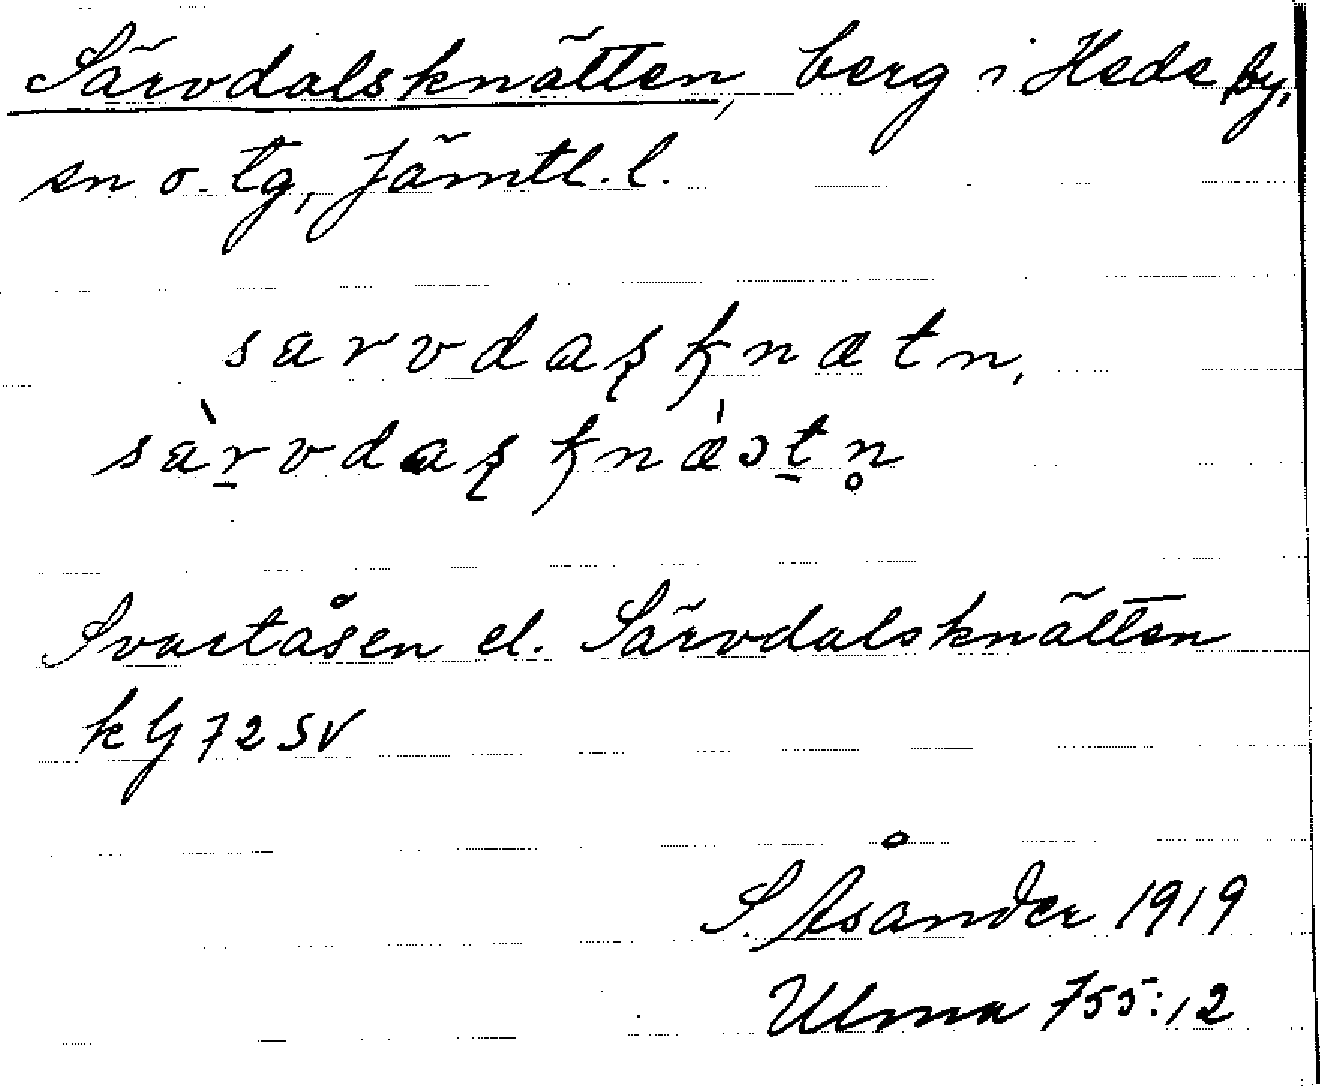 Särvdalsknätten, berg i Hede by,
sn o. tg, Jämtl. l.
særvdaʂknætn,
sæ̀r̲vdaʂknæ̀ɔt̲n̥
Svartåsen el. Särvdalsknätten
k G 72 SV
S. Åsander 1919
Ulma 755:12